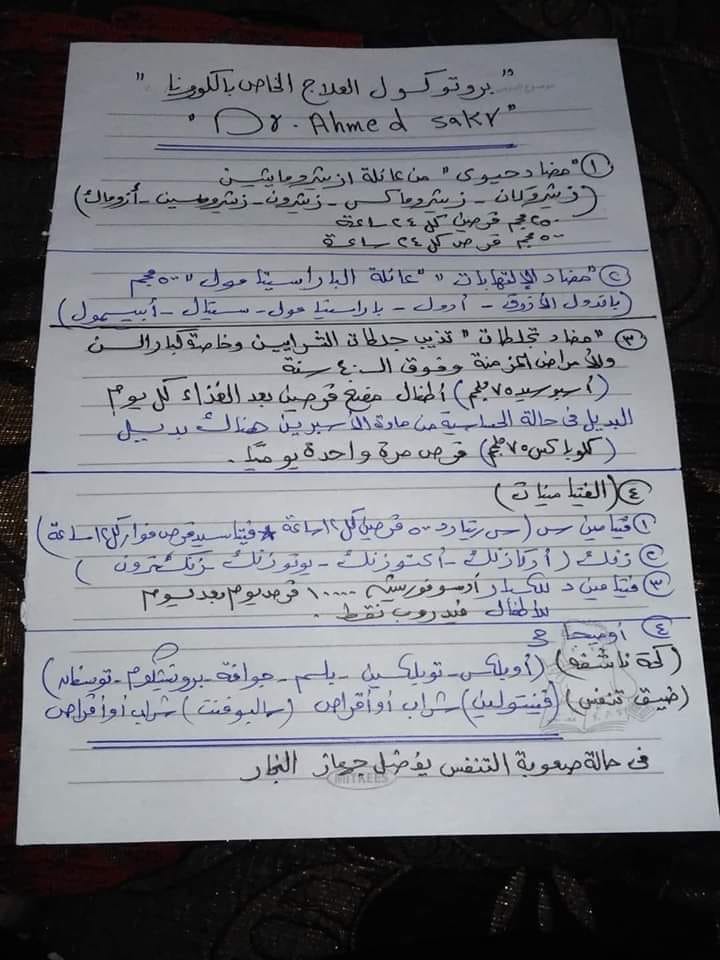 "بروتوكول العلاج الخاص بالكورونا"
"Dr. Ahmed sakr"
① "مضاد حيوى" من عائلة ازيثروميسين
(زيثروكان - زيثروماكس - زيثرون - زيثروميسين - أزوماك)
٢٥٠ مجم قرصين كل ٢٤ ساعة
٥٠٠ مجم قرص كل ٢٤ ساعة
② "مضاد الإلتهابات" "عائلة الباراسيتامول" ٥٠٠ مجم
(بانادول الأزرق - أدول - باراسيتامول - سيتال - أبيمول)
③ "مضاد تجلطات" تذيب جلطات الشرايين وخاصة كبار السن
ولأمراض المزمنة وفوق الـ ٤٠ سنة
(أسبوسيد ٧٥ ملجم) أطفال مضغ قرصين بعد الغذاء كل يوم
البديل فى حالة الحساسية من مادة الأسبرين هناك بديل
(كلوباكس ٧٥ ملجم) قرص مرة واحدة يوميًا.
④ (الفيتامينات)
① فيتامين س (س ريتارد ٥٠٠ قرص كل ١٢ ساعة * فيتاسيد قرص فوار كل ١٢ ساعة)
② زنك (أوكتازنك - أكتوزنك - يوتوزنك - زنكترون)
③ فيتامين د للكبار أوسوفورتين ١٠٠٠٠ قرص يوم بعد يوم
للأطفال فيدروب نقط.
④ أوميجا 3
(كحة ناشفة) (أوبلكس - توبلكسين - بلسم - جوافة - برونشيكوم - توسفان)
(ضيق تنفس) (فينتولين) شراب أو أقراص (سالبوفنت) شراب أو أقراص
فى حالة صعوبة التنفس يفضل جهاز البخار
MITKEES